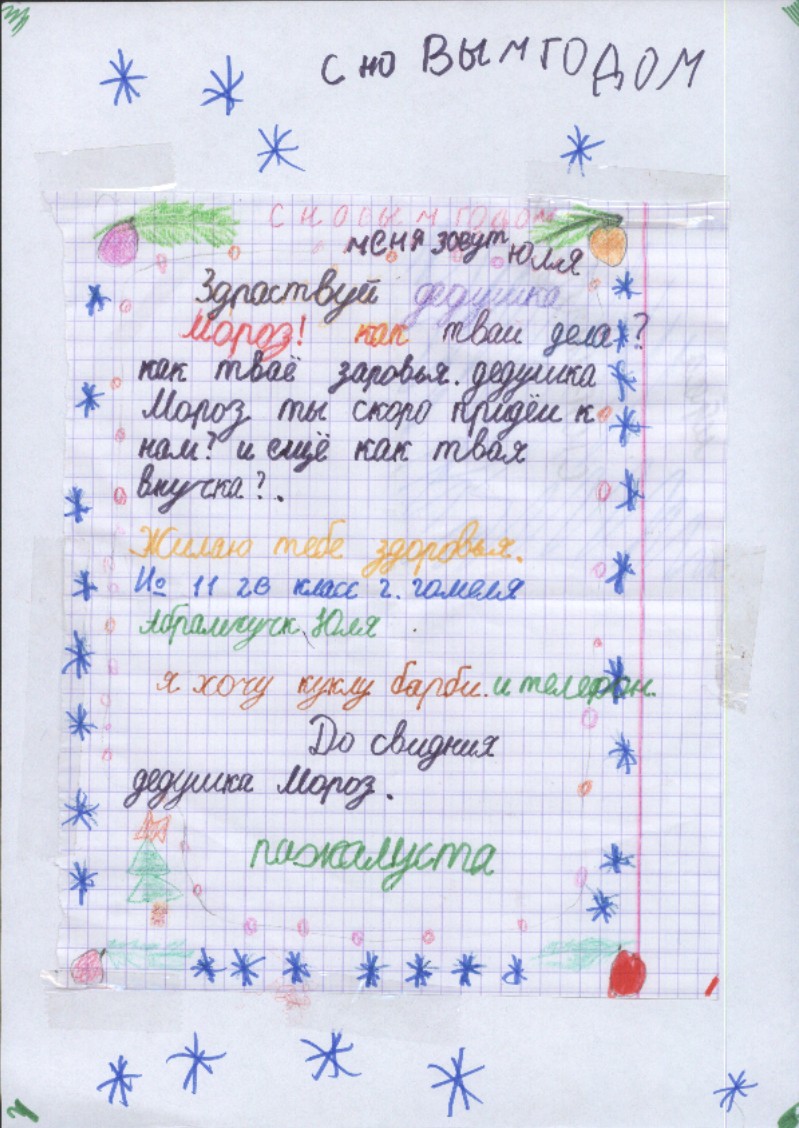 С но ВЫМ ГОДОМ
С новым годом
меня зовут Юля
Здраствуй дедушка
Мороз! как тваи дела?
как тваё заровья. дедушка
Мороз ты скоро придёш к
нам? и ещё как твая
внучка?.
Жилаю тебе здоровья.
№ 11 2в класс г. гомеля
Юля
я хочу куклу барби. и телефон.
До свидния
дедушка Мороз.
пажалуста